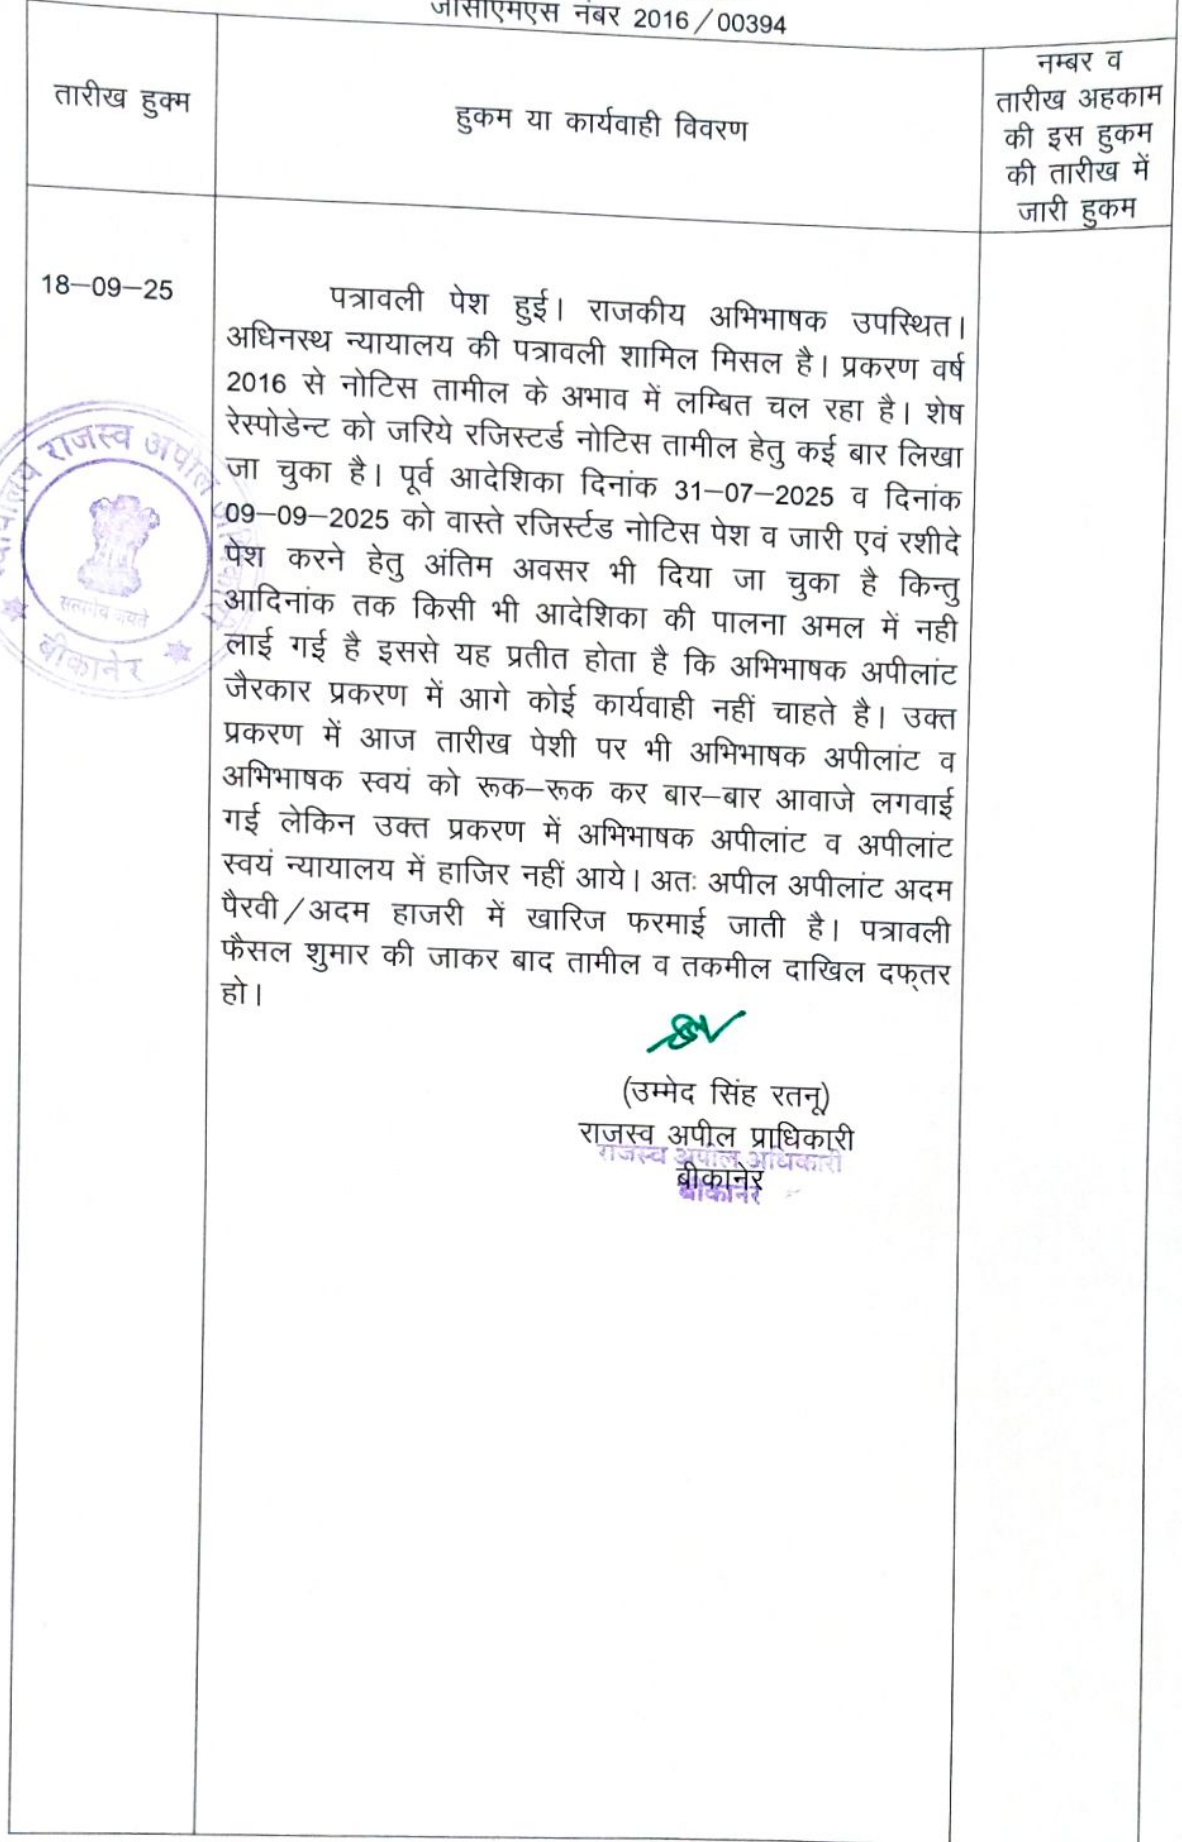 जीसीएमएस नंबर 2016/00394
तारीख हुक्म
हुकम या कार्यवाही विवरण
नम्बर व
तारीख अहकाम
की इस हुकम
की तारीख में
जारी हुकम
18-09-25
पत्रावली पेश हुई। राजकीय अभिभाषक उपस्थित।
अधिनस्थ न्यायालय की पत्रावली शामिल मिसल है। प्रकरण वर्ष
2016 से नोटिस तामील के अभाव में लम्बित चल रहा है। शेष
रेस्पोडेन्ट को जरिये रजिस्टर्ड नोटिस तामील हेतु कई बार लिखा
जा चुका है। पूर्व आदेशिका दिनांक 31-07-2025 व दिनांक
09-09-2025 को वास्ते रजिर्स्टड नोटिस पेश व जारी एवं रशीदे
पेश करने हेतु अंतिम अवसर भी दिया जा चुका है किन्तु
आदिनांक तक किसी भी आदेशिका की पालना अमल में नही
लाई गई है इससे यह प्रतीत होता है कि अभिभाषक अपीलांट
जैरकार प्रकरण में आगे कोई कार्यवाही नहीं चाहते है। उक्त
प्रकरण में आज तारीख पेशी पर भी अभिभाषक अपीलांट व
अभिभाषक स्वयं को रूक-रूक कर बार-बार आवाजे लगवाई
गई लेकिन उक्त प्रकरण में अभिभाषक अपीलांट व अपीलांट
स्वयं न्यायालय में हाजिर नहीं आये। अतः अपील अपीलांट अदम
पैरवी/अदम हाजरी में खारिज फरमाई जाती है। पत्रावली
फैसल शुमार की जाकर बाद तामील व तकमील दाखिल दफ्तर
हो।
राजस्व अपील
सत्यमेव जयते
बीकानेर
(उम्मेद सिंह रतनू)
राजस्व अपील प्राधिकारी
राजस्व अपील अधिकारी
बीकानेर
बीकानेर